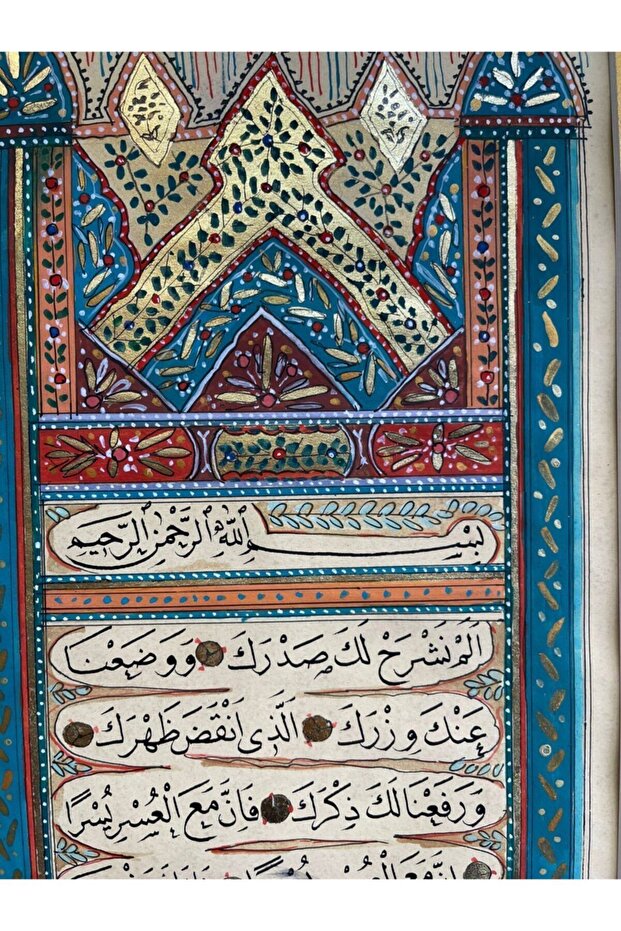 بِسْمِ اللّٰهِ الرَّحْمٰنِ الرَّحِيمِ
اَلَمْ نَشْرَحْ لَكَ صَدْرَكَ وَوَضَعْنَا
عَنْكَ وِزْرَكَ اَلَّذِى اَنْقَضَ ظَهْرَكَ
وَرَفَعْنَا لَكَ ذِكْرَكَ فَاِنَّ مَعَ الْعُسْرِ يُسْرًا